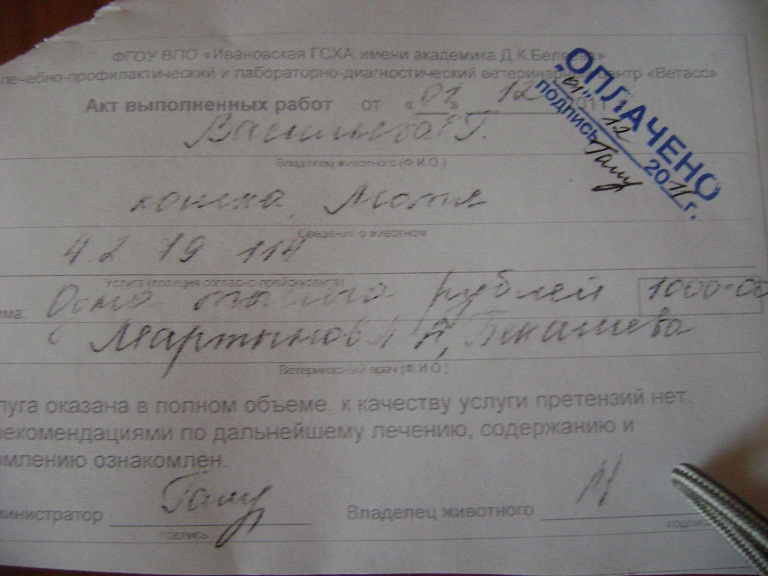 ФГОУ ВПО «Ивановская ГСХА имени академика Д.К.Беляева»
лечебно-профилактический и лабораторно-диагностический ветеринарный центр «Ветасс»
Акт выполненных работ от «01» 12 2011
Васильева Г.
Владелец животного (Ф.И.О.)
кошка, Мотя
Сведения о животном
4.2 79 114
Услуга (позиция согласно прейскуранта)
рублей 1000=00
Мартынов А Н,
Ветеринарный врач (Ф.И.О.)
луга оказана в полном объеме. к качеству услуги претензий нет.
рекомендациями по дальнейшему лечению, содержанию и
рмлению ознакомлен.
министратор Владелец животного
подпись подпись
ОПЛАЧЕНО
"01" 12 2011 г.
подпись